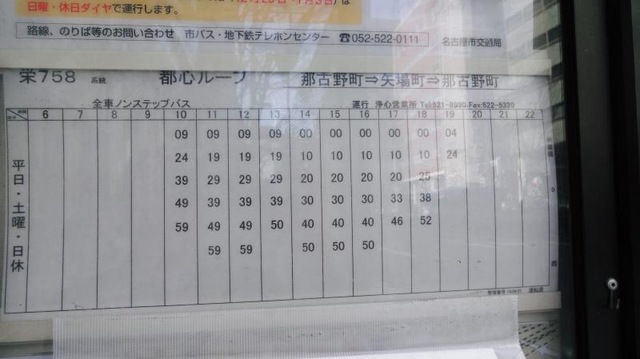 日曜・休日ダイヤで運行します。
路線、のりば等のお問い合わせ 市バス・地下鉄テレホンセンター ☎052-522-0111 名古屋市交通局
栄758 系統 都心ループ 那古野町⇒矢場町⇒那古野町
全車ノンステップバス 運行 浄心営業所
6 7 8 9 10 11 12 13 14 15 16 17 18 19 20 21 22
平日・土曜・日休
09 09 09 09 00 00 00 00 00 04
24 19 19 19 10 10 10 10 10 24
39 29 29 29 20 20 20 20 25
49 39 39 39 30 30 30 33 38
59 49 49 50 40 40 40 46 52
59 59 50 50 50